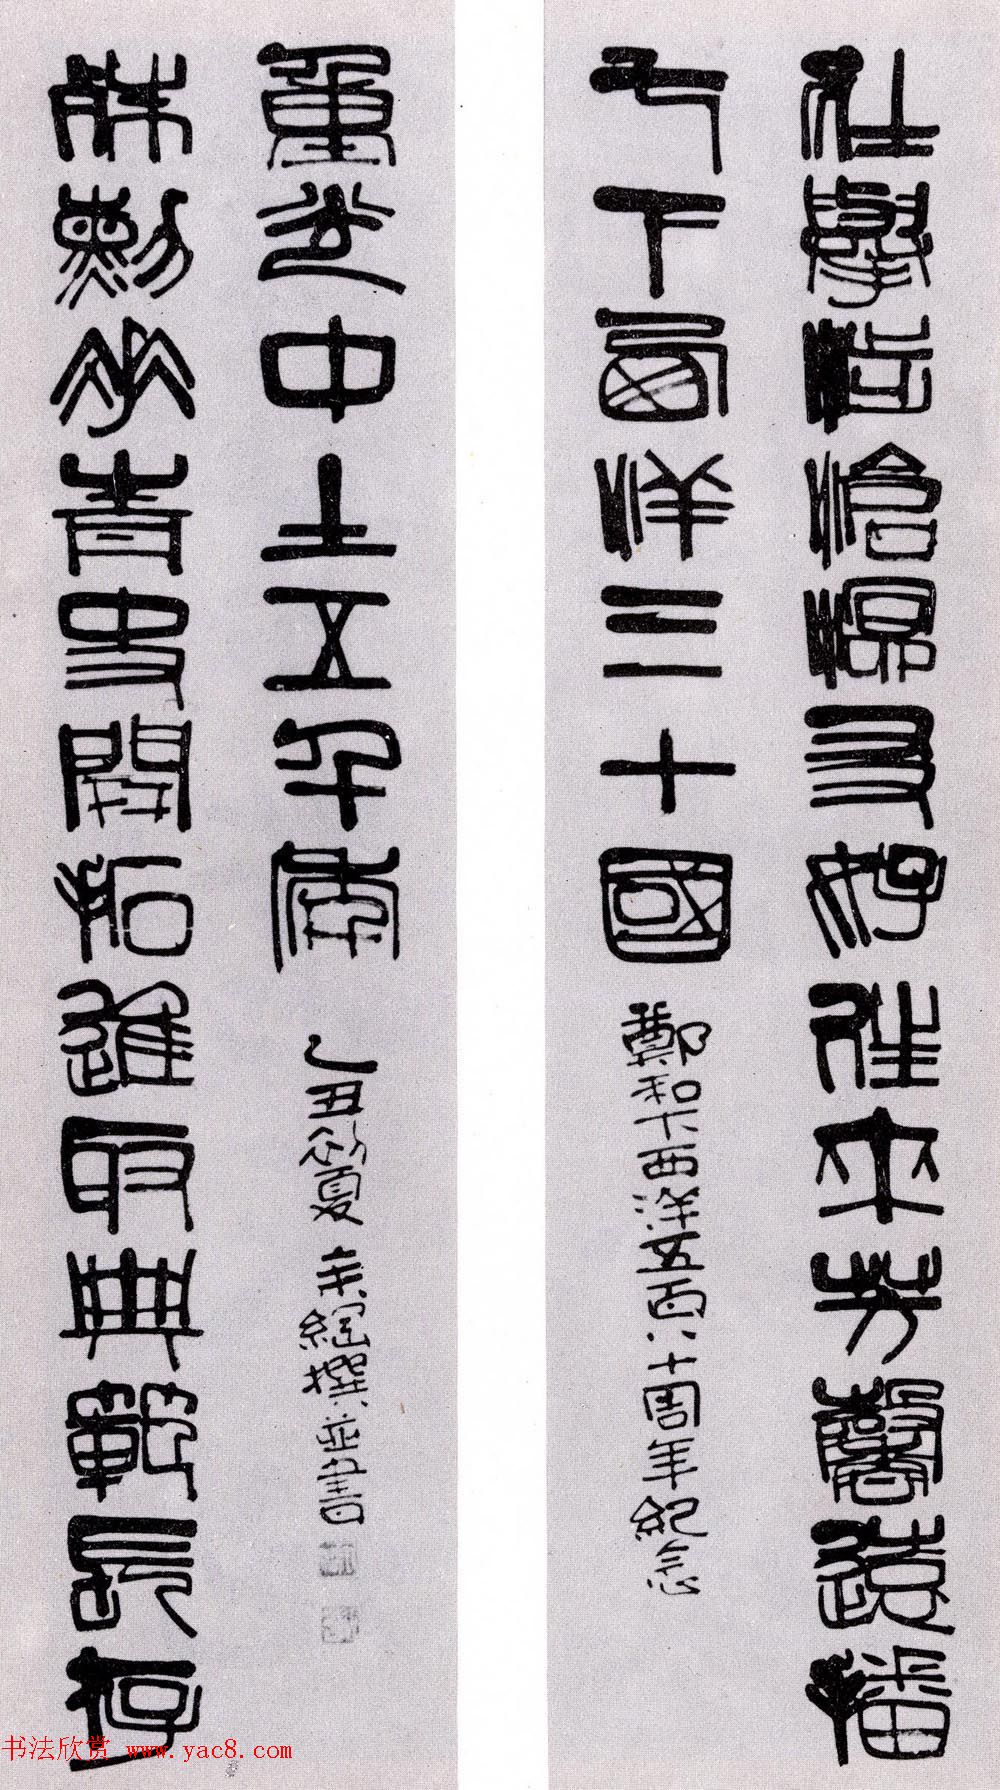 壯舉滄溟友好往來芳馨遠播
七下西洋三十國
鄭和下西洋五百八十周年紀念
殊勳垂青史開拓進取典範長存
重光中土五千年
乙丑初夏 撰並書
书法欣赏 www.yac8.com